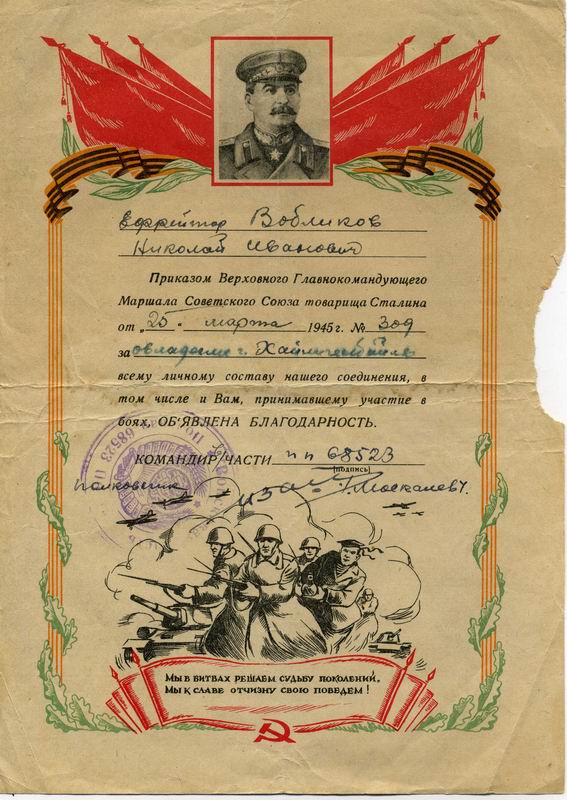 Ефрейтор Вобликов
Николай Иванович
Приказом Верховного Главнокомандующего
Маршала Советского Союза товарища Сталина
от „25“ марта 1945 г. № 309
за овладение г. Хайлигенбайль
всему личному составу нашего соединения, в
том числе и Вам, принимавшему участие в
боях, ОБ'ЯВЛЕНА БЛАГОДАРНОСТЬ.
КОМАНДИР ЧАСТИ пп 68523
(подпись)
полковник /Москалев/.
68523
МЫ В БИТВАХ РЕШАЕМ СУДЬБУ ПОКОЛЕНИЙ,
МЫ К СЛАВЕ ОТЧИЗНУ СВОЮ ПОВЕДЕМ!